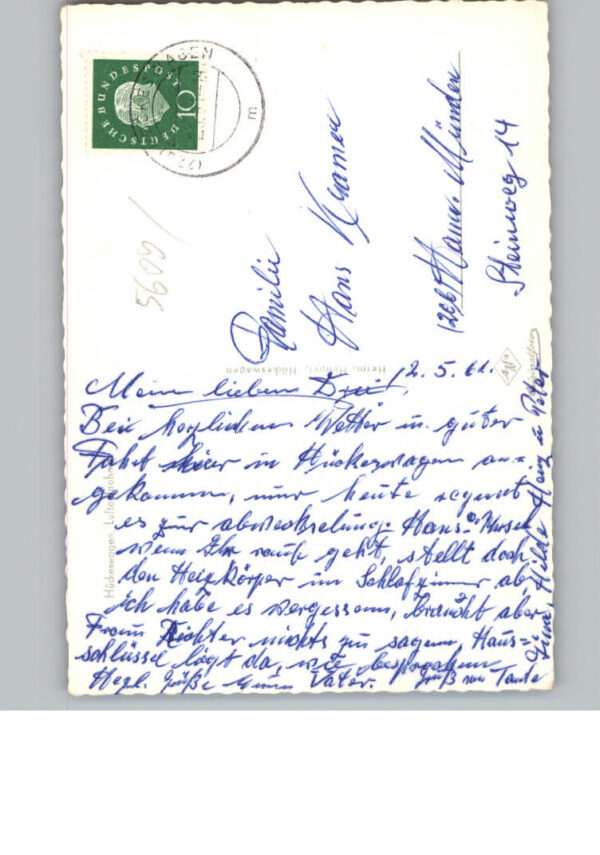 DEUTSCHE BUNDESPOST
10
5609/
Familie
Hans Kramer
Hann. Münden
Steinweg 14
Herm. Heibges, Hückeswagen
Agfa
Hückeswagen Luftaufnahme
2.5.61.
Meine lieben Drei!
Bei herrlichem Wetter u. guter
Fahrt hier in Hückeswagen an=
gekommen, nur heute regnet
es zur abwechselung. Hans
wenn Ihr rauf geht, stellt doch
den Heizkörper im Schlafzimmer ab,
ich habe es vergessen, braucht aber
Frau Richter nichts zu sagen, Haus=
schlüssel liegt da, wie besprochen
Herzl. Grüße Euer Vater. Gruß von Tante
Hilde Heinz u. Peter